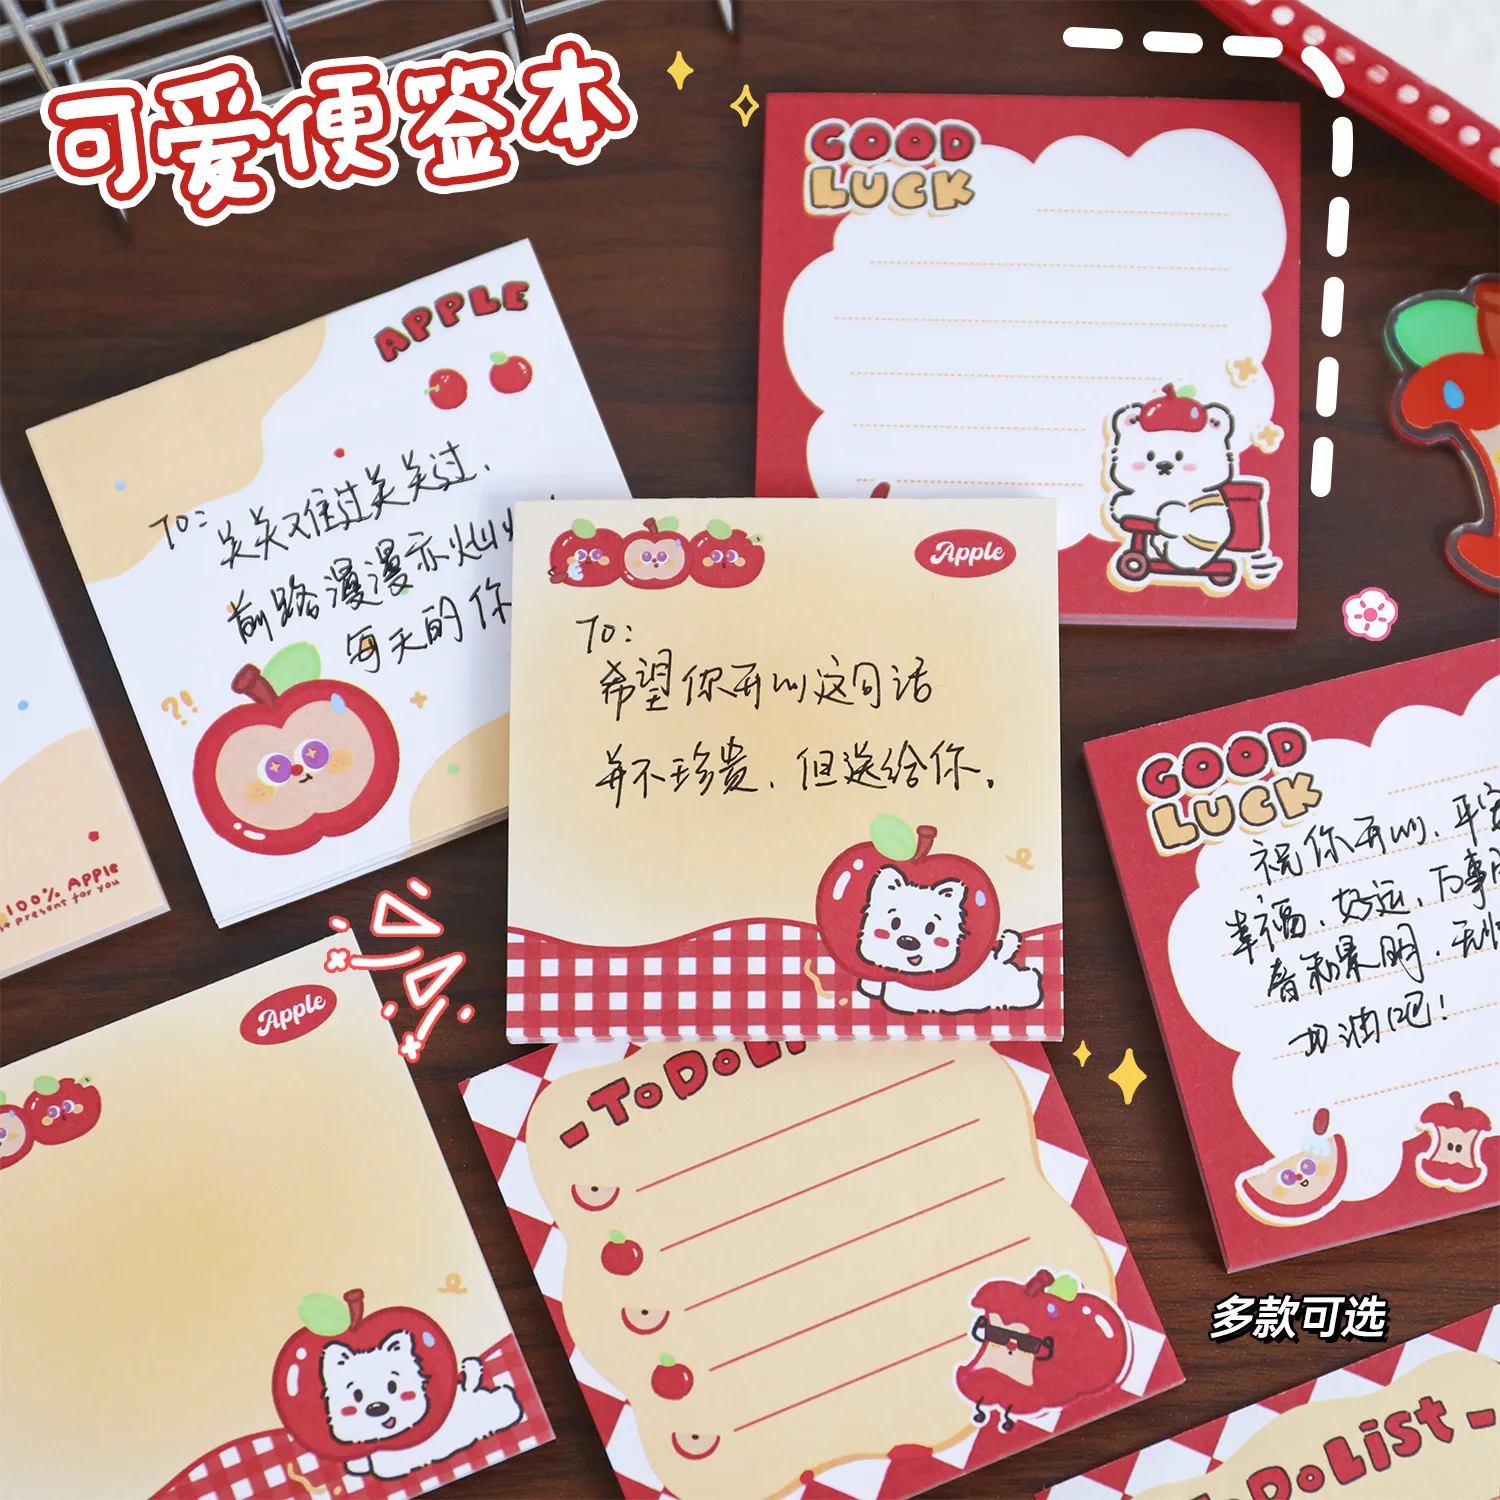 可爱便签本
GOOD
LUCK
APPLE
TO:
关关难过关关过,
前路漫漫亦灿灿
每天的你
?!
100% APPLE
present for you
Apple
TO:
希望你开心这句话
并不珍贵,但送给你。
GOOD
LUCK
祝你开心、平安
幸福、好运、万事
春和景明、
加油吧!
Apple
- TO DO LI
多款可选
DO LIST -